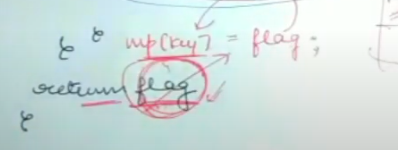 } } mp[key] = flag;
return flag
}